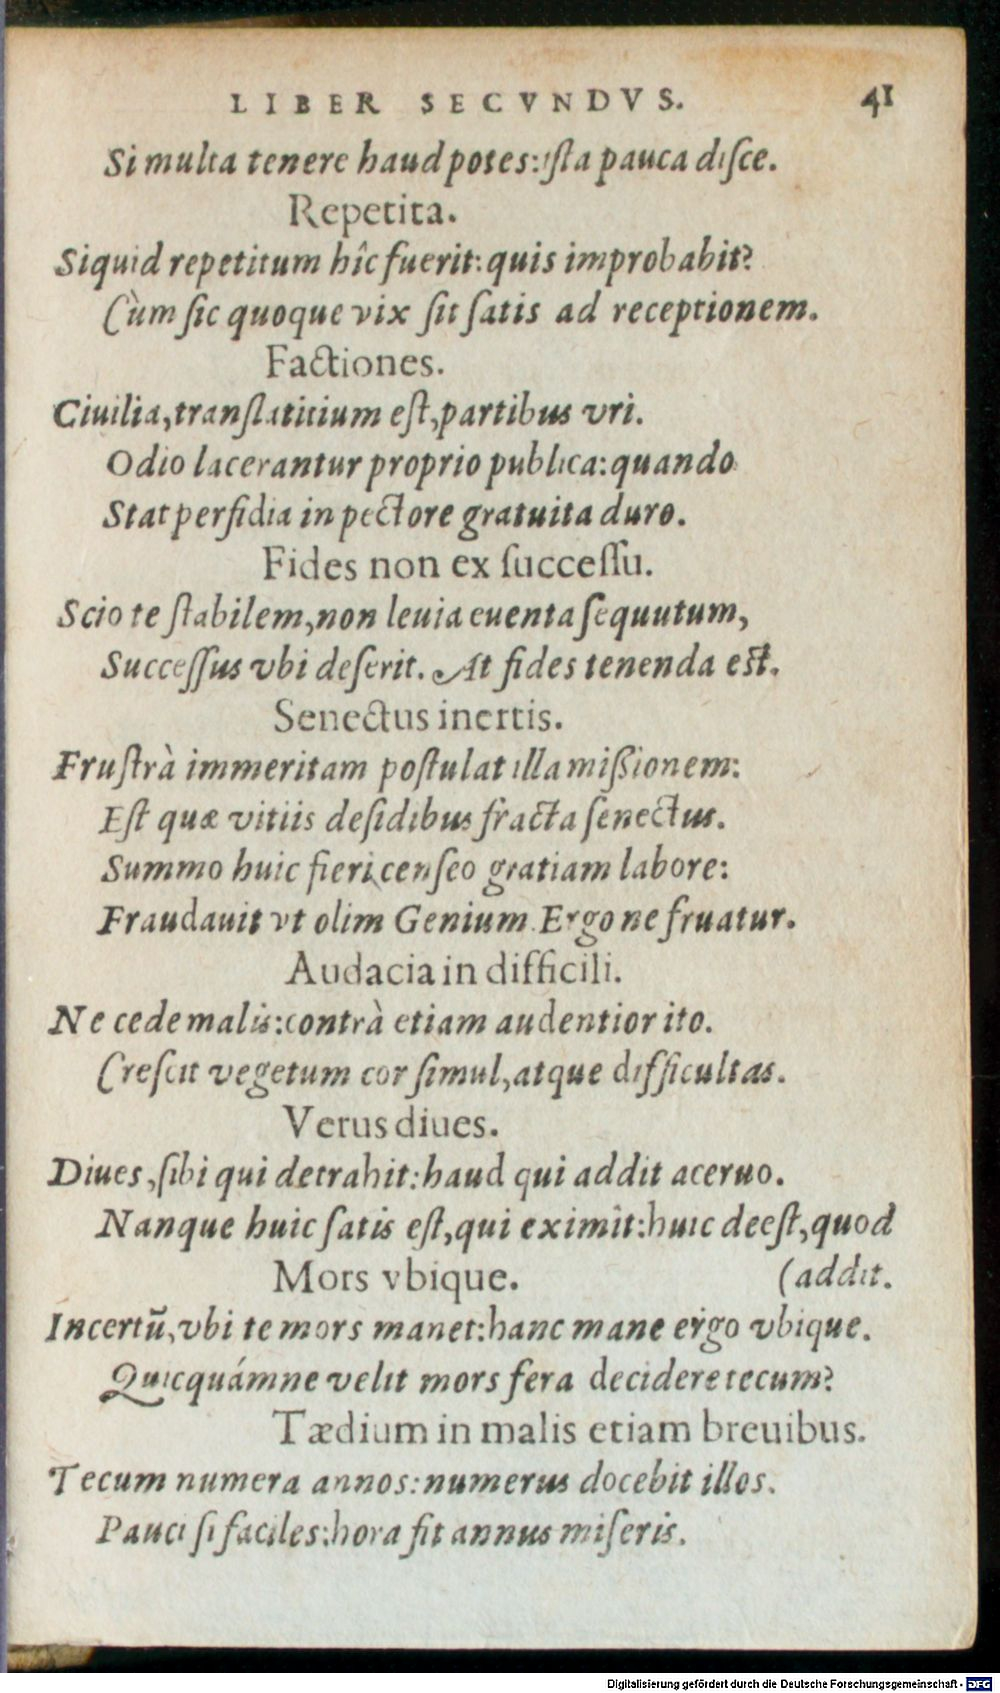 LIBER SECVNDVS. 41
Si multa tenere haud potes: ista pauca disce.
Repetita.
Siquid repetitum hîc fuerit: quis improbabit?
Cùm sic quoque vix sit satis ad receptionem.
Factiones.
Ciuilia, translatitium est, partibus vri.
Odio lacerantur proprio publica: quando
Stat perfidia in pectore gratuita duro.
Fides non ex successu.
Scio te stabilem, non leuia euenta sequutum,
Successus vbi deserit. At fides tenenda est.
Senectus inertis.
Frustrà immeritam postulat illa missionem:
Est quæ vitiis desidibus fracta senectus.
Summo huic fieri censeo gratiam labore:
Fraudauit vt olim Genium. Ergo ne fruatur.
Audacia in difficili.
Ne cede malis: contrà etiam audentior ito.
Crescit vegetum cor simul, atque difficultas.
Verus diues.
Diues, sibi qui detrahit: haud qui addit aceruo.
Nanque huic satis est, qui eximit: huic deest, quod
Mors vbique. (addit.
Incertũ, vbi te mors manet: hanc mane ergo vbique.
Quicquámne velit mors fera decidere tecum?
Tædium in malis etiam breuibus.
Tecum numera annos: numerus docebit illos.
Pauci si faciles: hora fit annus miseris.
Digitalisierung gefördert durch die Deutsche Forschungsgemeinschaft - DFG